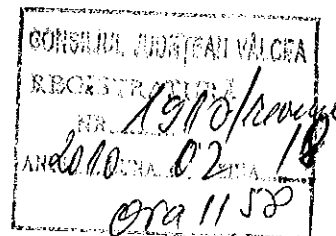 CONSILIUL JUDEŢEAN VÂLCEA
REGISTRATURA
NR.
ANUL 2010 LUNA 02 ZIUA 18
Ora 11 58